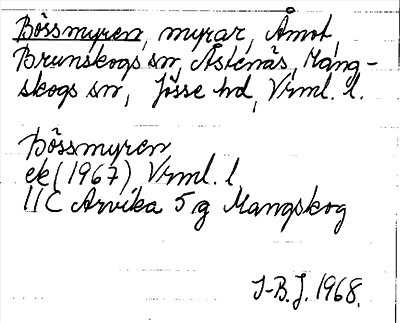 Bössmyren, myrar, Åmot,
Brunskogs sn, Åstenäs, Mang-
skogs sn, Jösse hd, Vrml. l.
Bössmyren
ek (1967) Vrml. l
11C Arvika 5 g Mangskog
J-B.J. 1968.